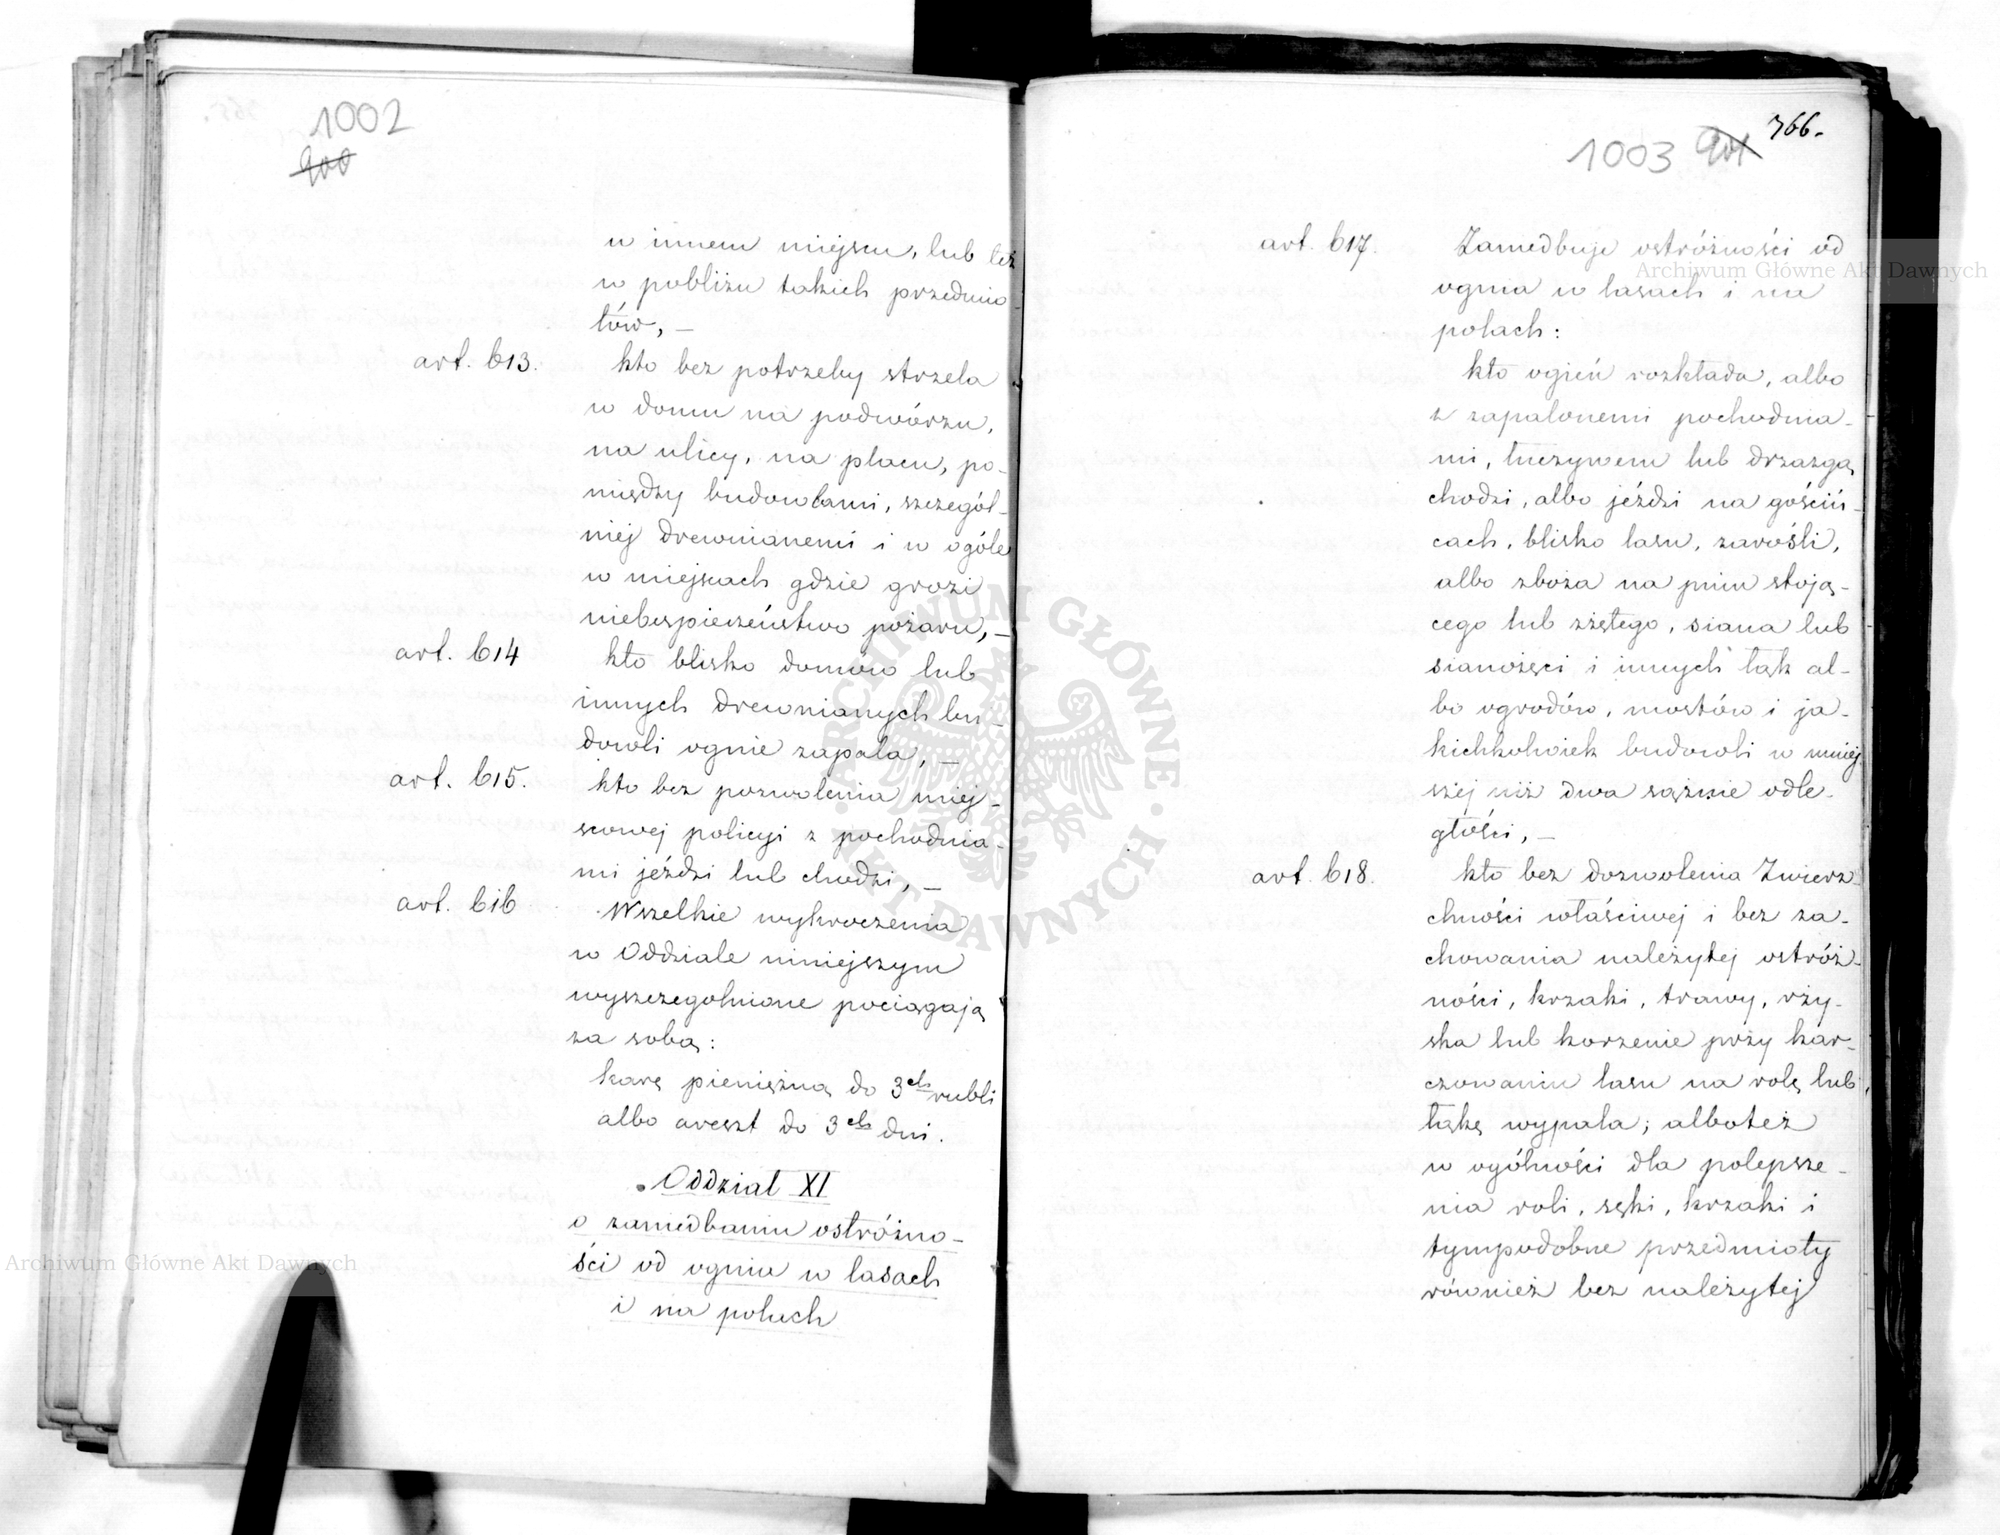 1002
900
w innem miejscu, lub też
w pobliżu takich przedmio
tów, —
art. 613.
kto bez potrzeby strzela
w domu na podwórzu,
na ulicy, na placu, po-
między budowlami, szczegól-
niej drewnianemi i w ogóle
w miejscach gdzie grozi
niebezpieczeństwo pożaru, —
art. 614
kto blisko domów lub
innych drewnianych bu-
dowli ognie zapala, —
art. 615.
kto bez pozwolenia miej-
scowej policyi z pochodnia-
mi jeździ lub chodzi, —
art. 616
Wszelkie wykroczenia
w Oddziale niniejszym
wyszczególnione pociągają
za sobą:
karę pieniężną do 3ch rubli
albo areszt do 3ch dni.
Oddział XI
o zaniedbaniu ostrożno-
ści od ognia w lasach
i na polach
366.
1003 901
art. 617.
Zaniedbuje ostrożności od
ognia w lasach i na
polach:
kto ogień rozkłada, albo
z zapalonemi pochodnia-
mi, łuczywem lub drzazgą
chodzi, albo jeździ na gościń-
cach, blisko lasu, zarośli,
albo zboża na pniu stoją-
cego lub zżętego, siana lub
sianożęci i innych łąk al-
bo ogrodów, mostów i ja-
kichkolwiek budowli w mniej
szej niż dwa sążnie odle-
głości, —
art. 618.
kto bez dozwolenia Zwierz-
chności właściwej i bez za-
chowania należytej ostróż-
ności, krzaki, trawy, rży-
ska lub korzenie przy kar-
czowaniu lasu na rolę lub
łąkę wypala; albo też
w ogólności dla polepsze-
nia roli, sęki, krzaki i
tympodobne przedmioty
również bez należytej
Archiwum Główne Akt Dawnych
Archiwum Główne Akt Dawnych
ARCHIWUM GŁÓWNE
AKT DAWNYCH